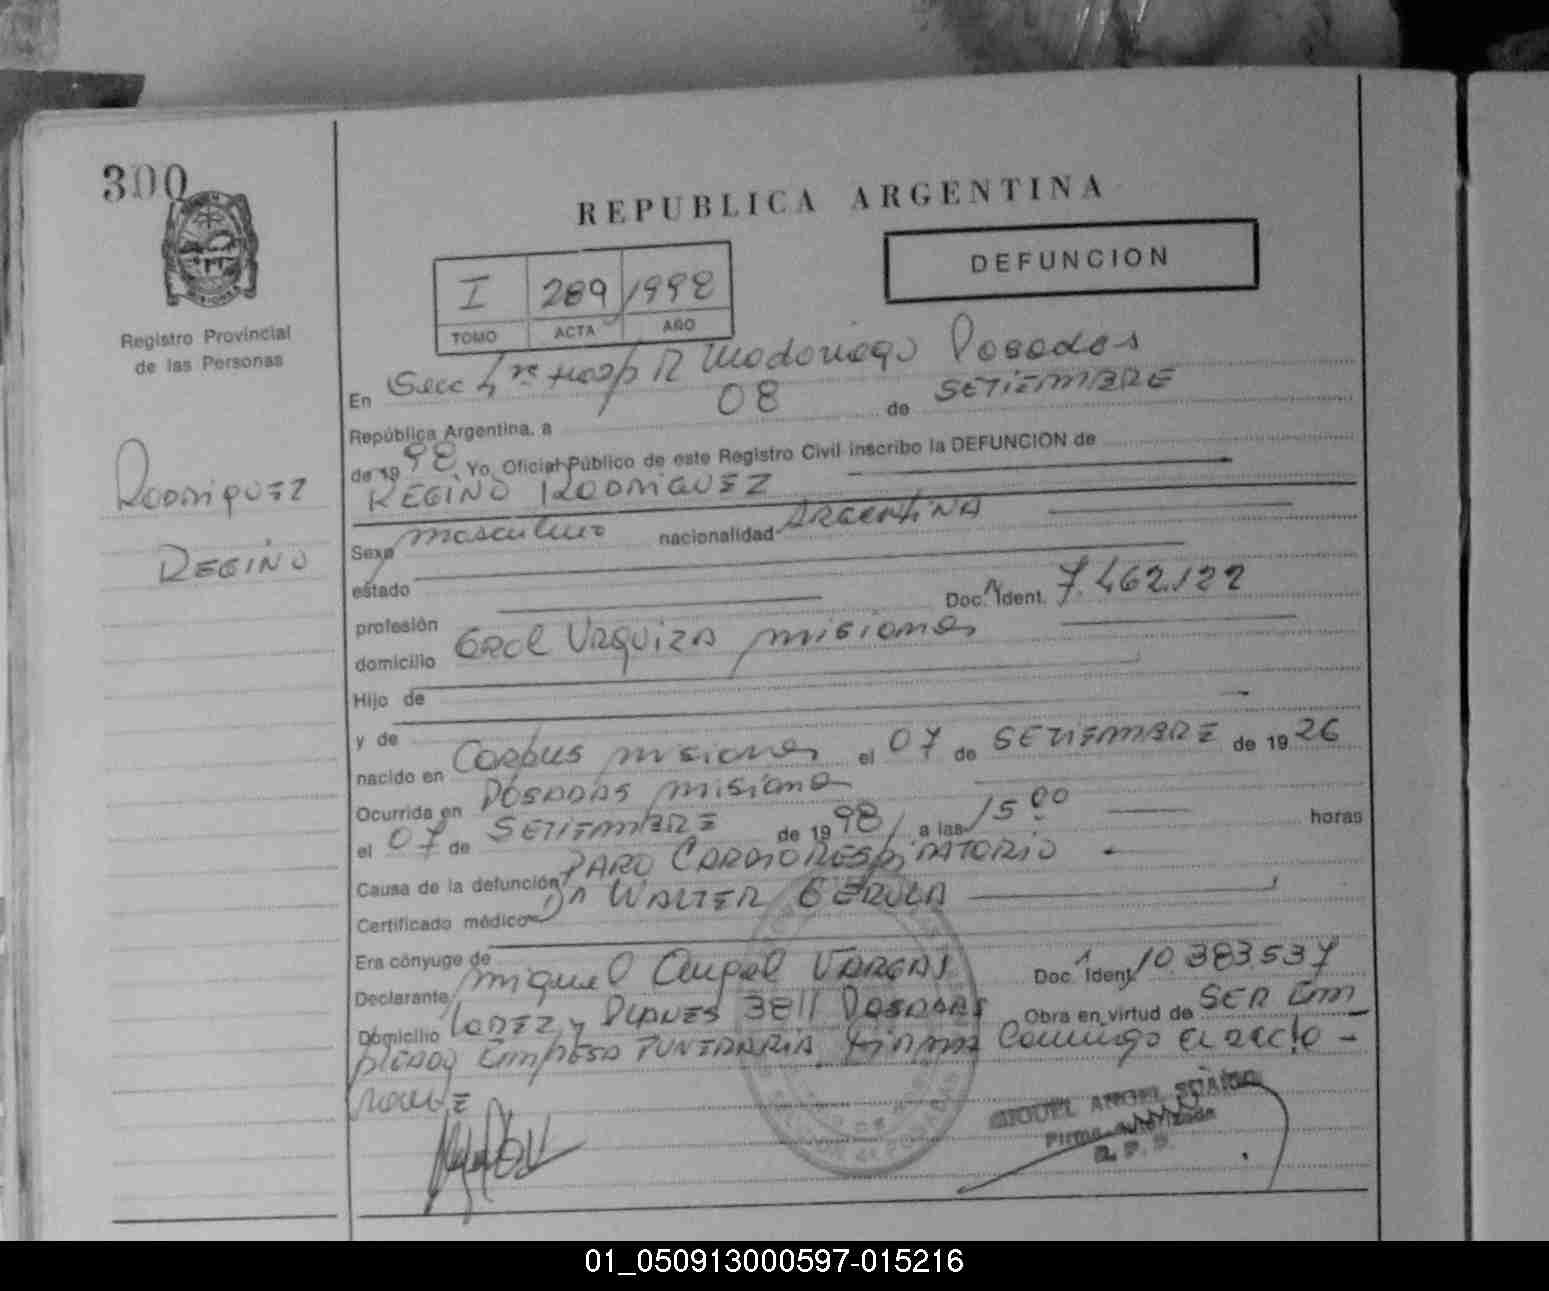 300
REPUBLICA ARGENTINA
DEFUNCION
I 289 1998
TOMO ACTA AÑO
Registro Provincial
de las Personas
En Secc 4ta Hosp R Madariaga Posadas
República Argentina, a 08 de SETIEMBRE
de 19 98 Yo, Oficial Público de este Registro Civil inscribo la DEFUNCION de
REGINO RODRIGUEZ
RODRIGUEZ
REGINO
Sexo masculino nacionalidad ARGENTINA
estado
profesión Doc. Ident. 7.462.122
domicilio GRAL URQUIZA misiones
Hijo de
y de
nacido en Corpus misiones el 07 de SETIEMBRE de 19 26
Ocurrida en POSADAS misiones
el 07 de SETIEMBRE de 19 98 a las 15 00 horas
Causa de la defunción PARO CARDIORESPIRATORIO
Certificado médico Dr WALTER
Era cónyuge de
Declarante miguel Angel VARGAS Doc. Ident. 10.383.537
Domicilio LOPEZ y PLANES 3811 POSADAS Obra en virtud de SER Em
pleado Empresa FUNERARIA firma Conmigo el decla-
rante
MIGUEL ANGEL
Firma autorizada
R. P. P.
01_050913000597-015216